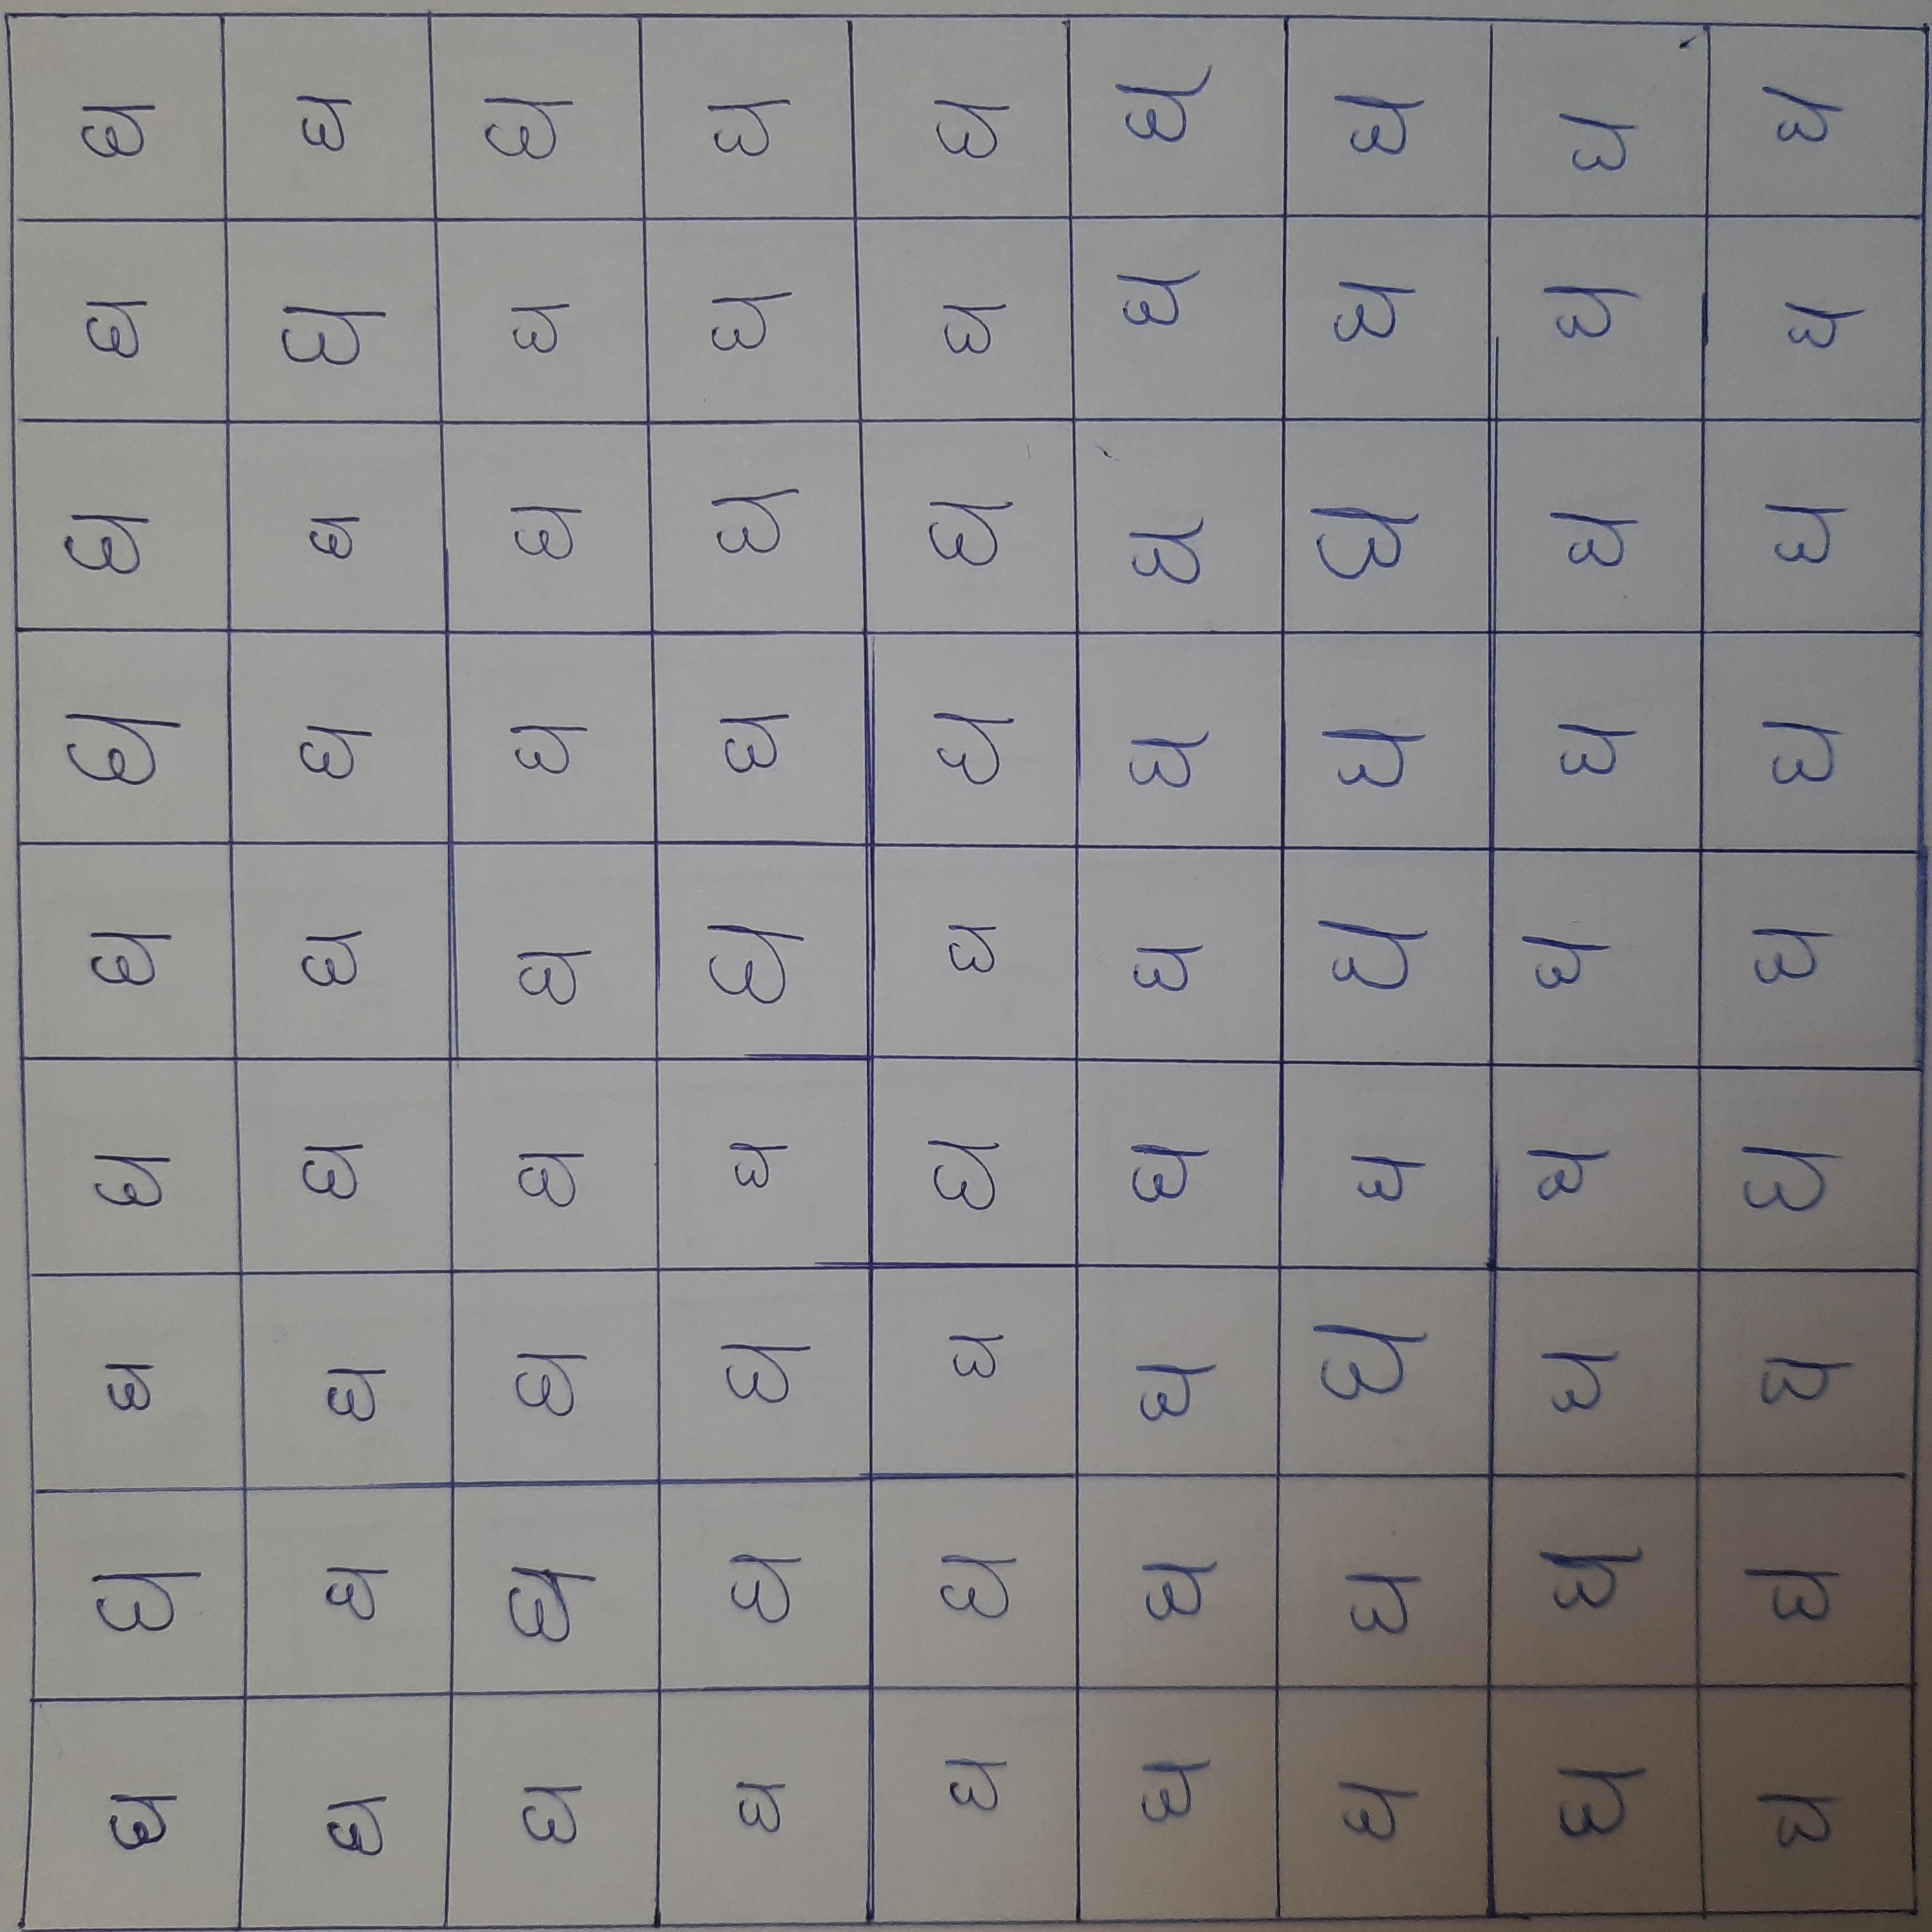 ઘ ઘ ઘ ઘ ઘ ઘ ઘ ઘ ઘ
ઘ ઘ ઘ ઘ ઘ ઘ ઘ ઘ ઘ
ઘ ઘ ઘ ઘ ઘ ઘ ઘ ઘ ઘ
ઘ ઘ ઘ ઘ ઘ ઘ ઘ ઘ ઘ
ઘ ઘ ઘ ઘ ઘ ઘ ઘ ઘ ઘ
ઘ ઘ ઘ ઘ ઘ ઘ ઘ ઘ ઘ
ઘ ઘ ઘ ઘ ઘ ઘ ઘ ઘ ઘ
ઘ ઘ ઘ ઘ ઘ ઘ ઘ ઘ ઘ
ઘ ઘ ઘ ઘ ઘ ઘ ઘ ઘ ઘ